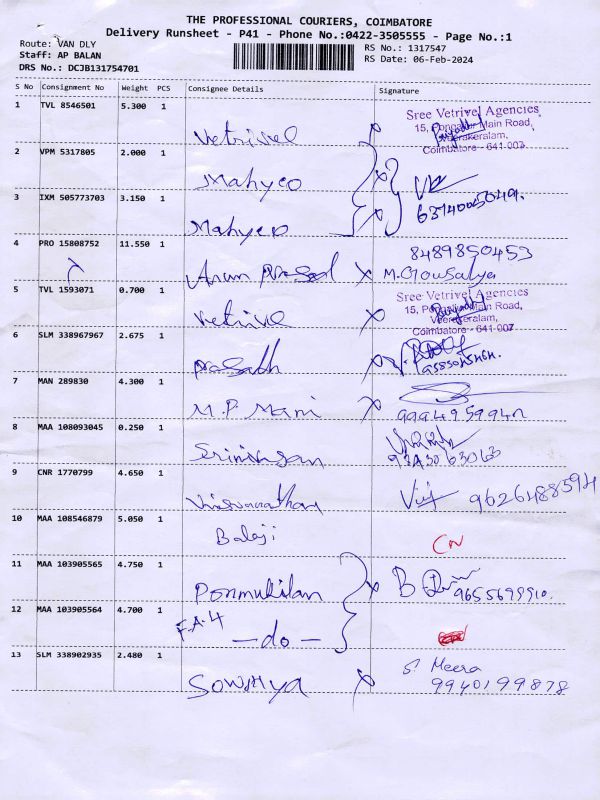 THE PROFESSIONAL COURIERS, COIMBATORE
Delivery Runsheet - P41 - Phone No.:0422-3505555 - Page No.:1
Route: VAN DLY
Staff: AP BALAN
DRS No.: DCJB131754701
RS No.: 1317547
RS Date: 06-Feb-2024
S No Consignment No Weight PCS Consignee Details Signature
1 TVL 8546501 5.300 1 Vetrivel
Sree Vetrivel Agencies
15, Main Road,
Coimbatore - 641-007
2 VPM 5317805 2.000 1 Mahyco
3 IXM 505773703 3.150 1 Mahyco
4 PRO 15808752 11.550 1 Arun Prasad 8489850453
M. Gowsalya
5 TVL 1593071 0.700 1 Vetrive
Sree Vetrivel Agencies
15, Main Road,
Coimbatore - 641-007
6 SLM 338967967 2.675 1 Prasadh
7 MAN 289830 4.300 1 M.P. Mani
8 MAA 108093045 0.250 1
9 CNR 1770799 4.650 1 Viswanathan 9626488594
10 MAA 108546879 5.050 1 Balaji CN
11 MAA 103905565 4.750 1 Ponmukilan 9655699910.
12 MAA 103905564 4.700 1 F.A.4 - do -
13 SLM 338902935 2.480 1 Sowmya S. Meera
9940199878